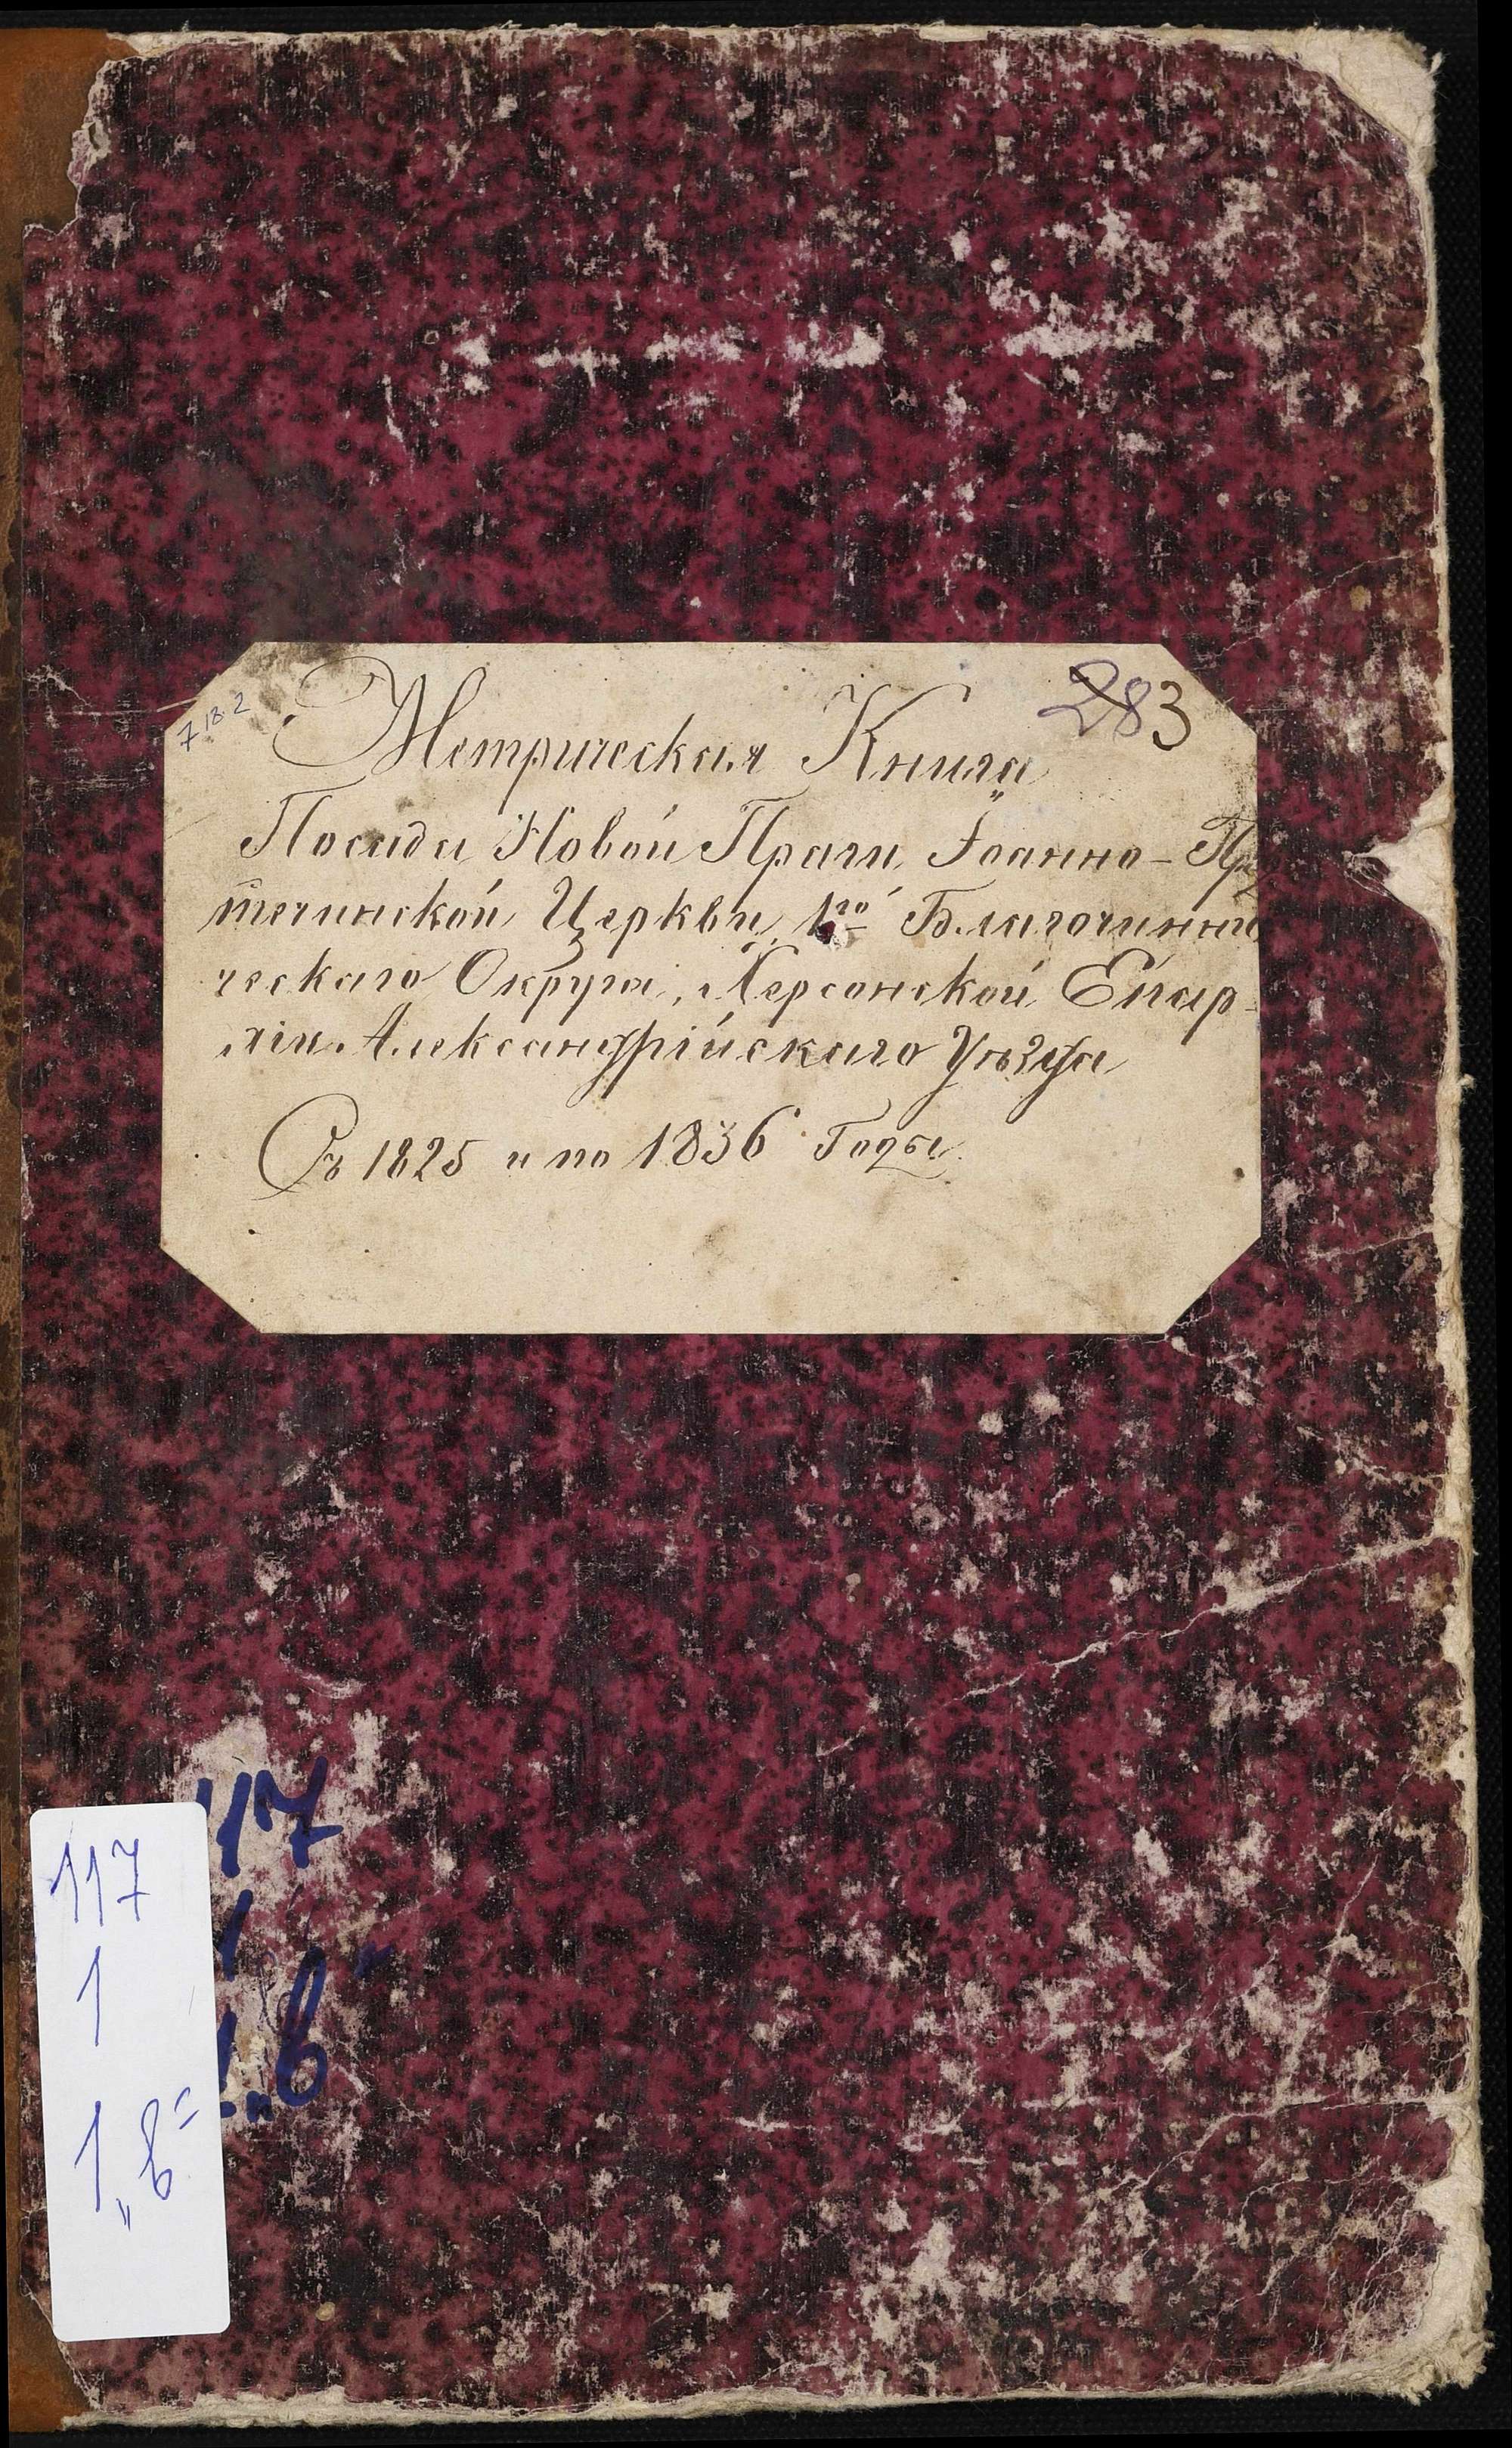 7182
283
Метрическая Книга
Посада Новой Праги, Іоанно-Пред
течинской Церкви, 1го Благочинни
ческаго Округа, Херсонской Епар-
хіи Александрійскаго Уѣзда
Съ 1825 и по 1836 Годы.
117
1
1„в"
117
1
1„в"